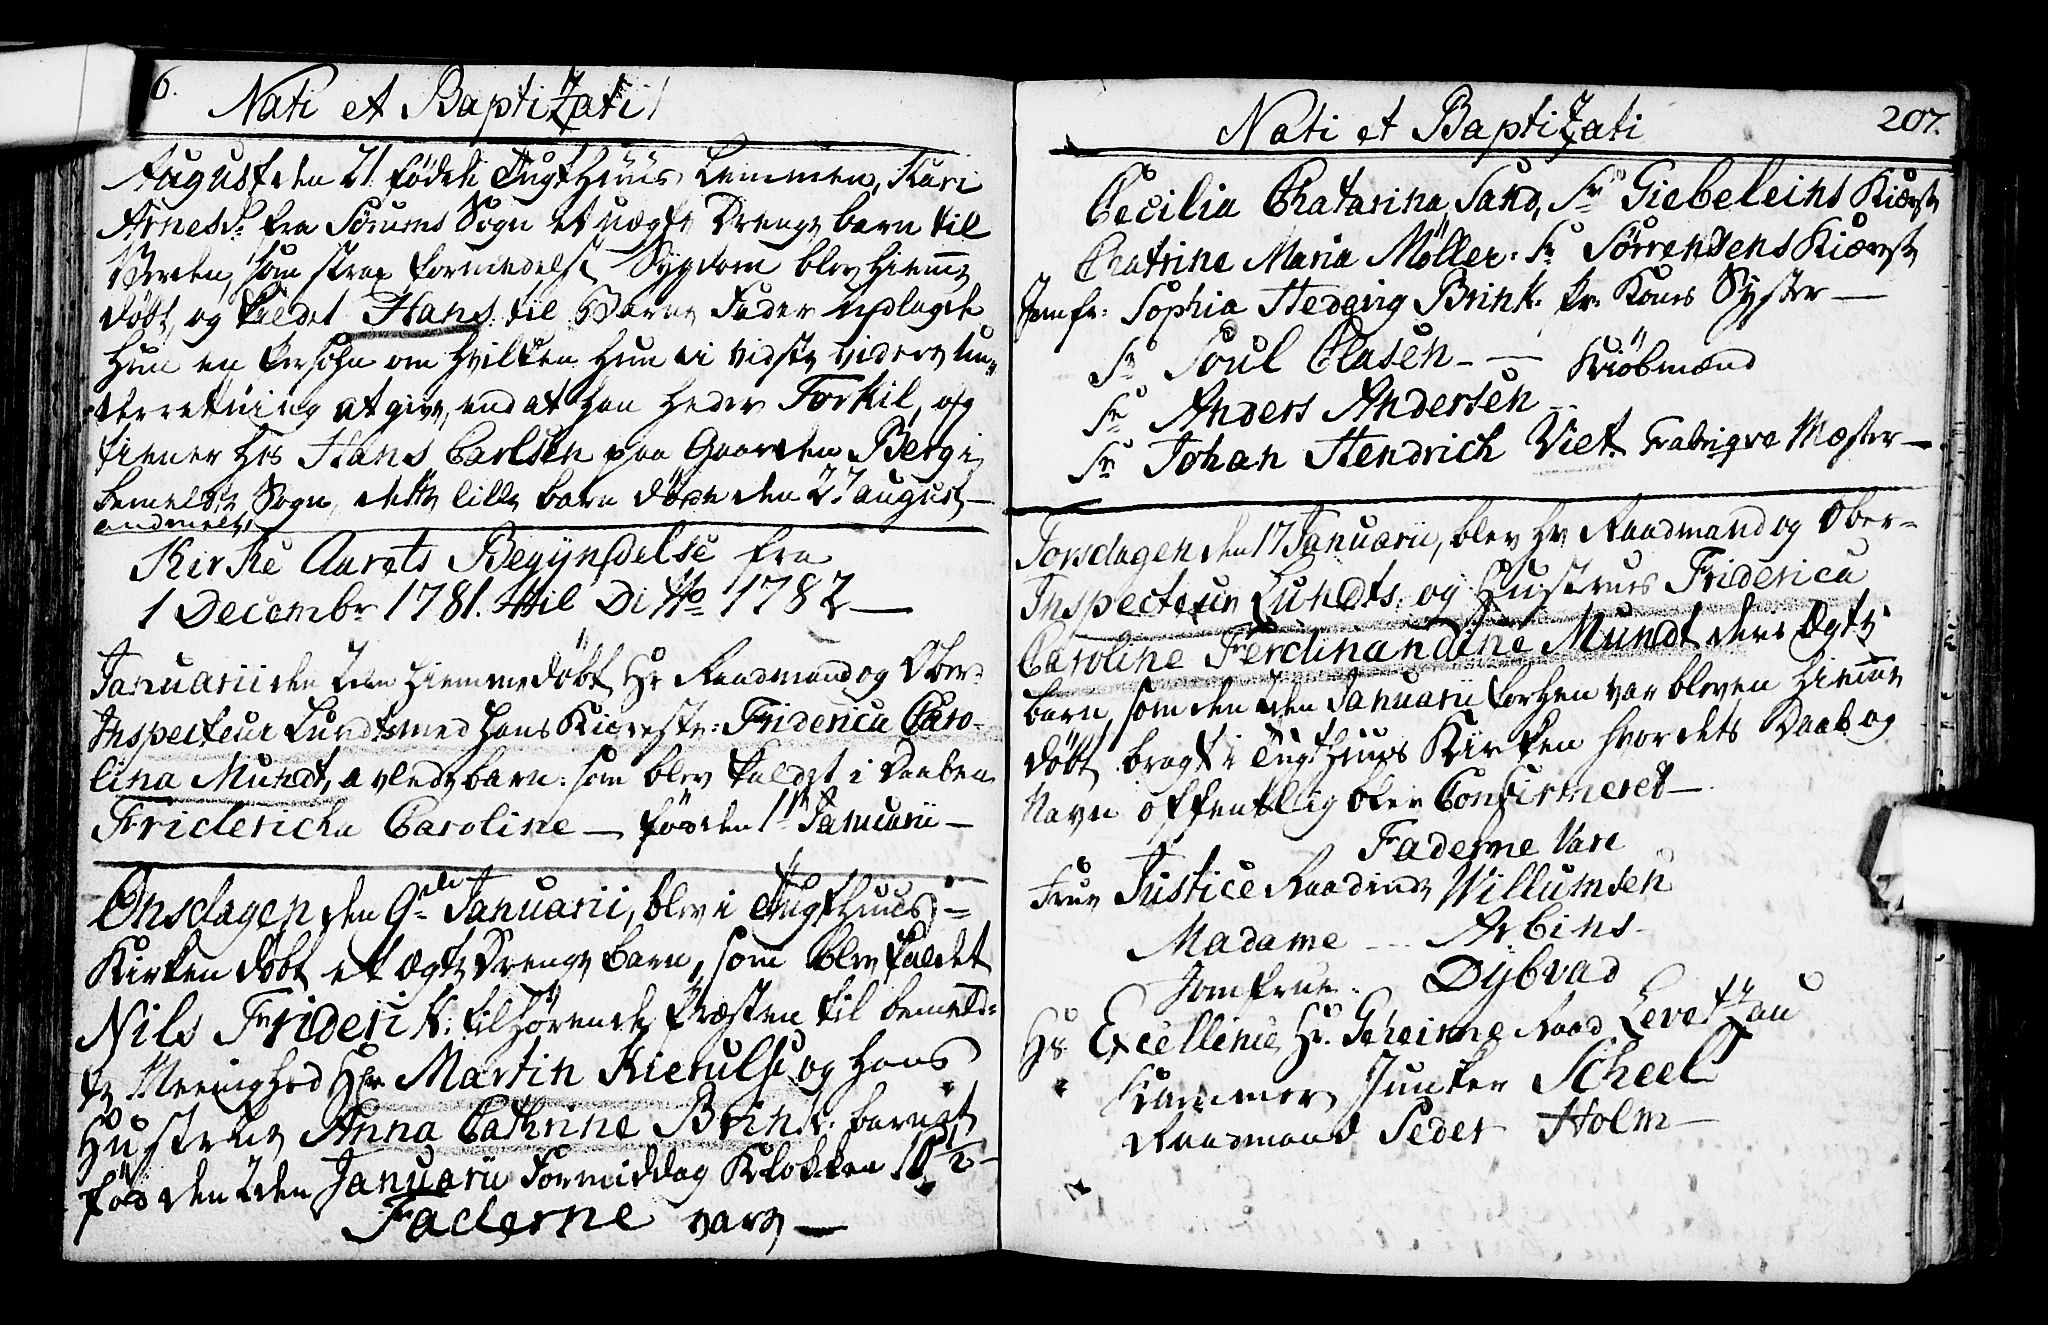 6.
Nati et Baptizati
August den 21 födte Tugthuus Lemmen, Kari
Arnesd: fra Sörums Sogn et uægte Drenge barn til
Verden, som strax formedelst Sygdom blev hiemme
döbt, og kaldet Hans. til Barne Fader udlagde
hun en Persohn om hvilken hun ei vidste videre un-
derretning at give, end at han heder Torkil, og
tiener hos Hans Carlsen paa Gaarden Berg i
bemeldte Sogn, dette lille barn döde den 27 august
andmelt,
Kirke Aarets Begyndelse fra
1 Decembr 1781. til Ditto 1782 —
Januarii den 2den hiemmedöbt Hr Raadmand og Ober-
Inspecteur Lundts med hans Kiereste: Friderica Caro-
lina Mundt, avlede barn: som blev kaldet i Daaben
Friderica Caroline — föd den 1ste Januarii —
Onsdagen den 9de Januarii, blev i Tugthuus-
Kirken döbt et ægte Drenge barn, som blev kaldet
Nils Friderik: tilhörende Præsten til bemeld-
te Meenighed Hr Martin Kierulf og hans
Hustrue Anna Cathrine Brink. barnet
föd den 2den Januarii Formiddag Klokken 10 1/2 —
Faderne vare —
Nati et Baptizati
207.
Cecilia Chatarina Sand, Sr Giebeleins Kiærste
Chatrine Maria Möller. Sr Sörrensens Kiærste
Jomfr: Sophia Hedevig Brink. Pr: Kones Syster —
Sr Poul Clasen — — Kiöbmænd
Sr Anders Andersen
Sr Johan Hendrich Viet Fabriqve Mæster —
Torsdagen den 17 Januarii, blev Hr Raadmand og Ober-
Inspecteur Lundts. og Hustrues Friderica
Caroline Ferdinandine Mundt deres Ægte
barn, som den 2den Januarii forhen var bleven hiemme
döbt bragt i Tugthuus Kirken hvor dets Daab og
Navn offentlig blev Confirmeret —
Faderne Vare
Frue Justice Raadinde Willumsen
Madame — Arbins
Jomfrue. Dybvad
Hs: Excellence Hr. Geheime Raad Levetzau
Kammer Junker Scheel
Raadmand Peder Holm —